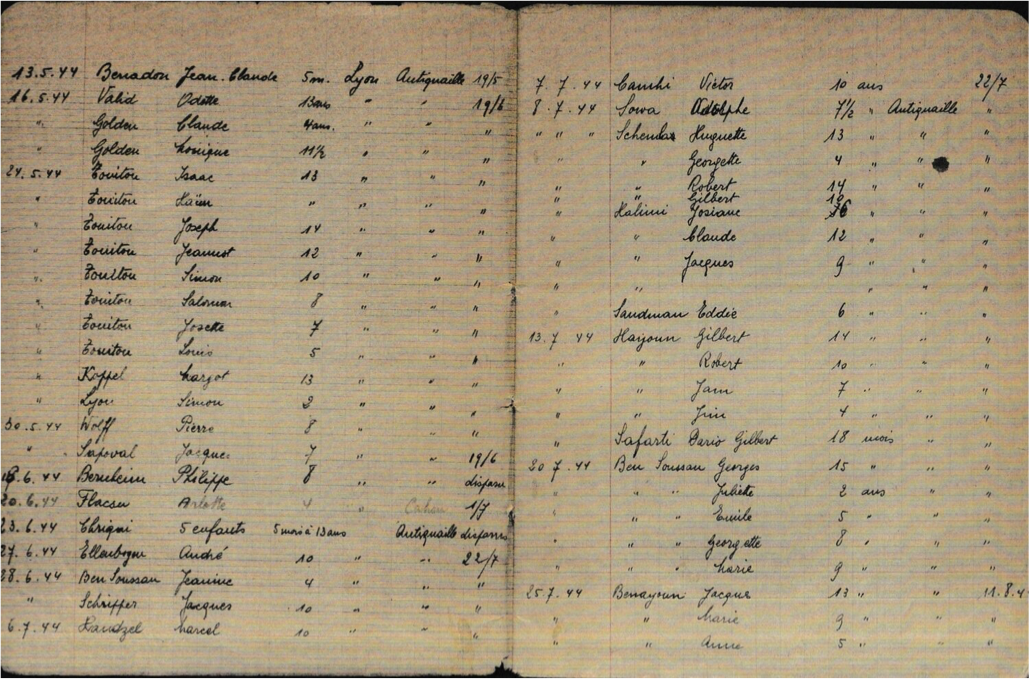 13.5.44 Benadon Jean.Claude 5m. Lyon Antiquaille 19/5
16.5.44 Valid Odette 13ans " " 19/6
" Golden Claude 4ans. " " "
" Golden Monique 11½ " " "
24.5.44 Touitou Isaac 13 " " "
" Touitou Haïm " " " "
" Touitou Joseph 14 " " "
" Touitou Jeannot 12 " " "
" Touitou Simon 10 " " "
" Touitou Salomon 8 " " "
" Touitou Josette 7 " " "
" Touitou Louis 5 " " "
" Koppel Margot 13 " " "
" Lyon Simon 2 " " "
30.5.44 Wolff Pierre 8 " " "
" Sapoval Jacques 7 " " 19/6
18.6.44 Bernheim Philippe 8 " " disparu
20.6.44 Flacsu Arlette 4 " Cahen 1/7
23.6.44 Chrigui 5 enfants 5 mois à 13 ans Antiquaille disparus
27.6.44 Ellenbogen André 10 " " 22/7
28.6.44 Ben Soussan Jeanine 4 " " "
" Schriffer Jacques 10 " " "
6.7.44 Handzel Marcel 10 " " "
7.7.44 Camhi Victor 10 ans 22/7
8.7.44 Sowa Adolphe 7½ " Antiquaille "
" " " Huguette 13 " " "
" " Georgette 4 " " "
" " Robert 14 " " "
" Gilbert 10
Halimi Josiane 16 " " "
" " Claude 12 " " "
" " Jacques 9 " " "
" " " " "
" Sandman Eddie 6 " " "
13.7 44 Hayoun Gilbert 14 " " "
" " Robert 10 " " "
" " Jam 7 " " "
" " Jim 4 " " "
" Safarti Dario Gilbert 18 mois " "
20 7.44 Ben Soussan Georges 15 " " "
" " " Juliette 2 ans " "
" " " Emile 5 " " "
" " " Georgette 8 " " "
" " " Marie 9 " " "
25.7.44 Benayoun Jacques 13 " " 11.8.4
" " Marie 9 " " "
" " Anne 5 " " "